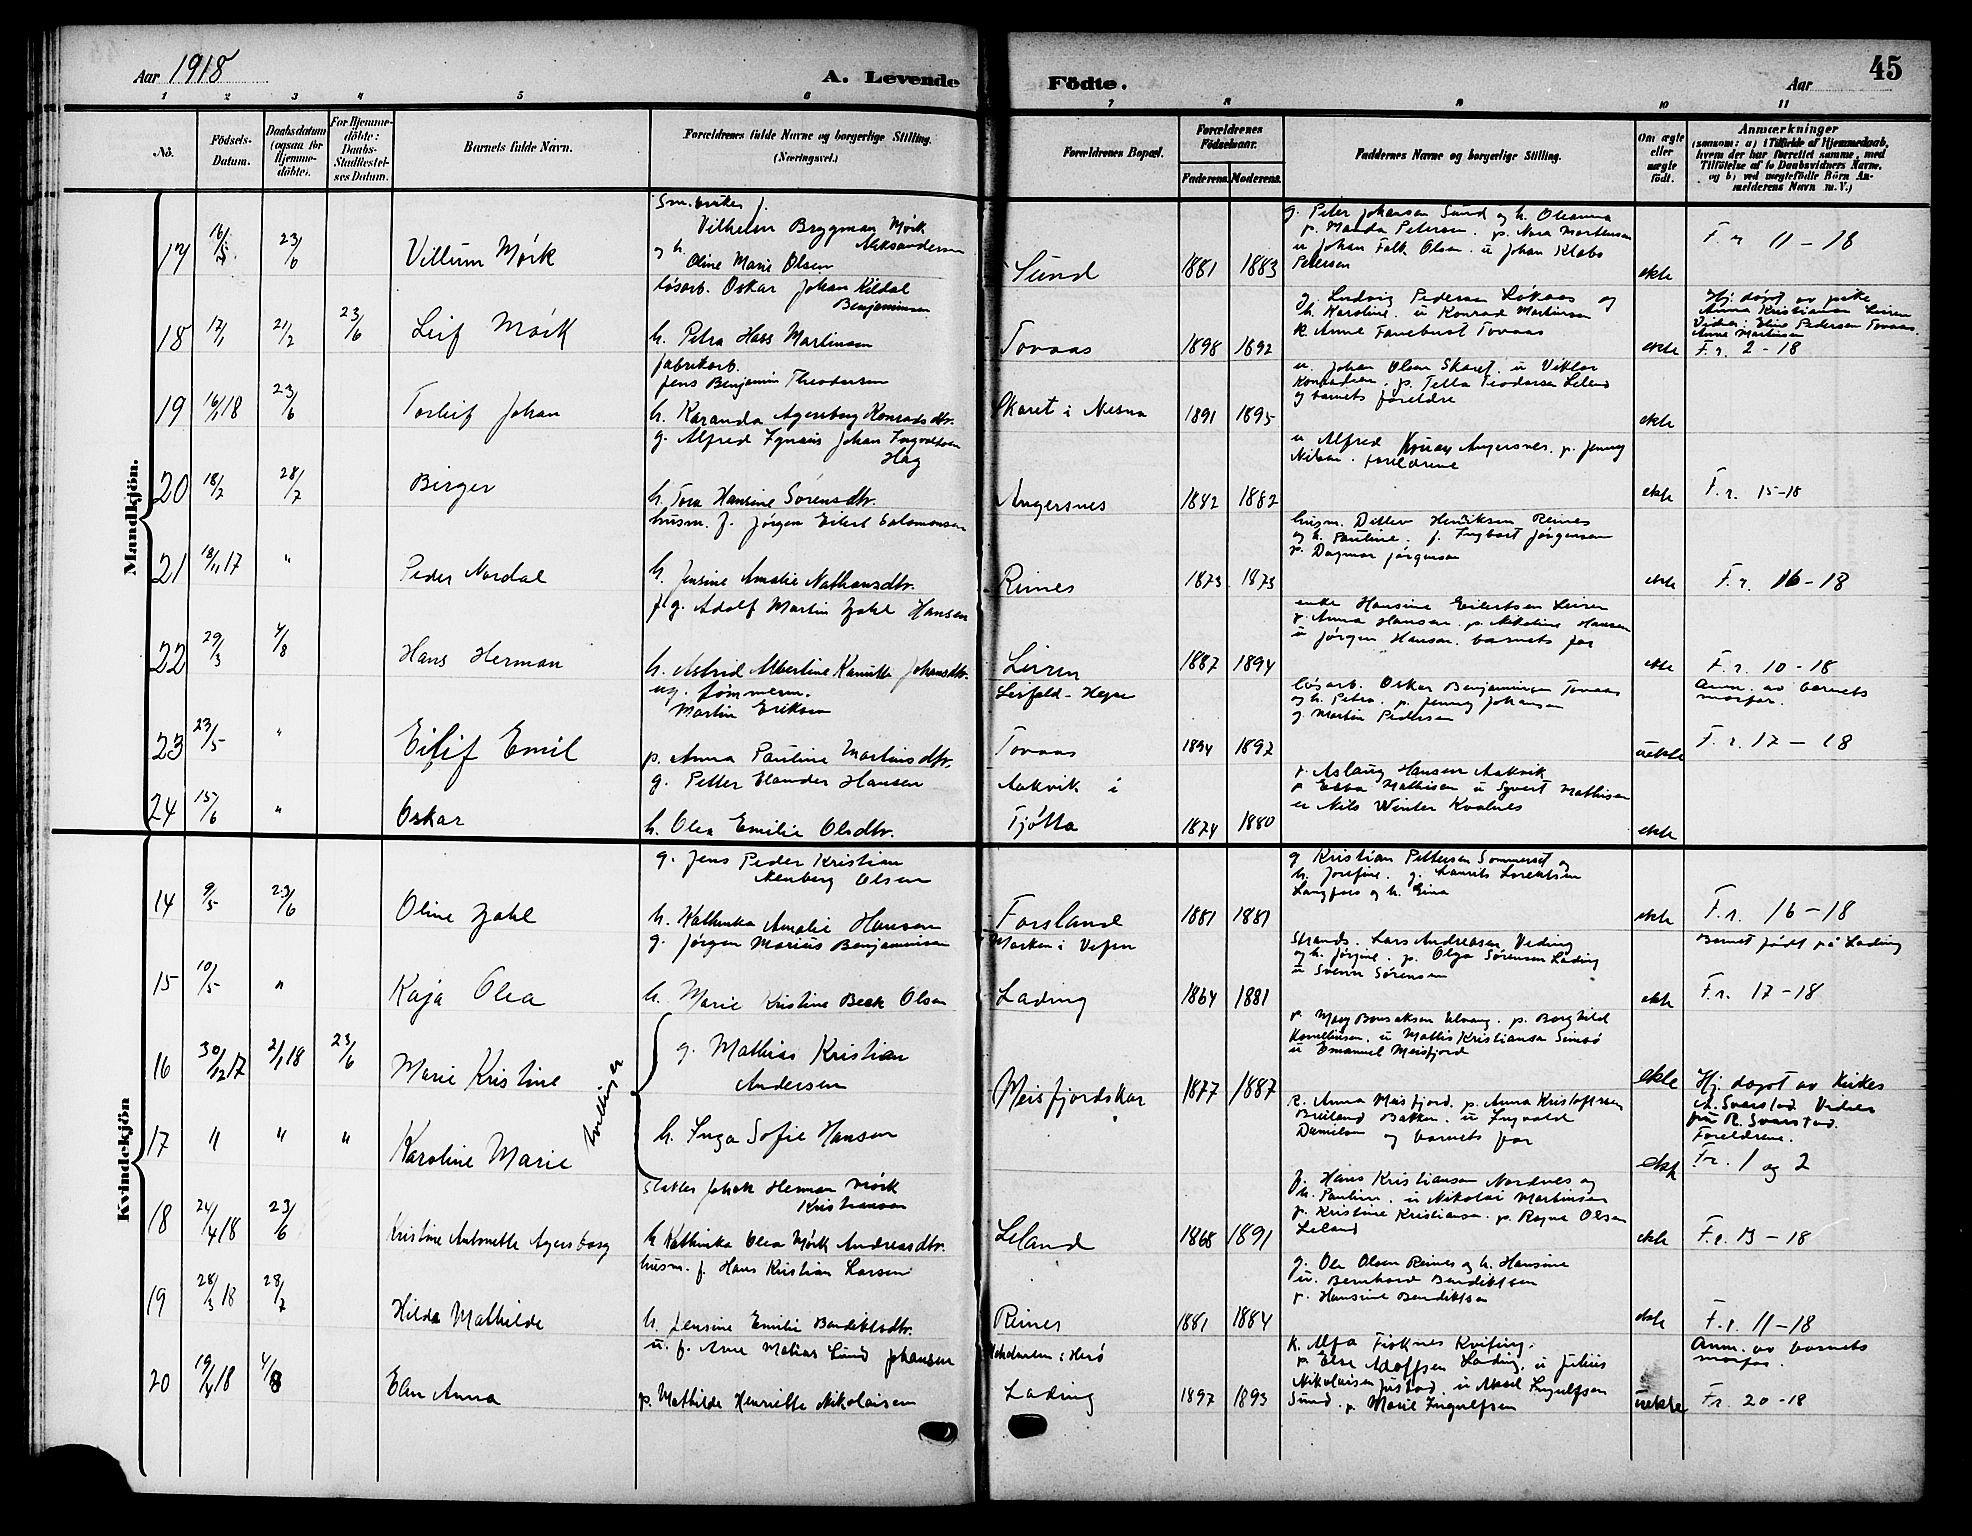 Aar 1918
A. Levende Födte.
Aar
45
1 2 3 4 5 6 7 8 9 10 11
No.
Födsels-Datum.
Daabsdatum (ogsaa for Hjemme-döbte).
For Hjemme-döbte: Daabs-Stadfæstel-ses Datum.
Barnets fulde Navn.
Forældrenes fulde Navne og borgerlige Stilling. (Næringsvei.)
Forældrenes Bopæl.
Forældrenes Födselsaar.
Faderens. Moderens.
Faddernes Navne og borgerlige Stilling.
Om ægte eller uægte født.
Anmærkninger
(saasom: a) i Tilfælde af Hjemmedaab, hvem der har forrettet samme, med Tilföielse af to Daabsvidners Navne, og b) ved uægtefödte Börn An-melderens Navn m. V.)
Mandkjön.
17 16/5 23/6 Villum Mørk
Vilhelm Bryggman Mørk Aleksandersen
og h. Oline Marie Olsen
Sund 1881 1883
g. Peter Johansen Sund og h. Oleanna
p. Manda Petersen. p. Nora Martensen
u Johan Falk Olsen. u Johan Klabo
Petersen
ekte
F. r. 11-18
18 17/1 21/2 23/6 Leif Mørk
løsarb. Oskar Johan Kildal Benjaminsen
h. Petra Hass Martinsen
Tovaas 1898 1892
g. Ludvig Pedersen Løkaas og
h. Karoline. u Konrad Martinsen
k Anne Fanebust Tovaas
ekte
Hj. døpt av pike
Anna Kristiansen Leiren
Vidner: Eline Pedersen Tovaas
Anne Martinsen
F. r. 2-18
19 16/1 18 23/6 Torleif Johan
fabrikarb.
Jens Benjamin Theodorsen
h. Karanda Agersborg Konradsdtr.
Skaret i Nesna 1891 1895
u. Johan Olsen Skaret. u Viktor
Konradsen. p. Tella Teodorsen Leland
og barnets foreldre
ekte
20 18/2 28/7 Birger
g. Alfred Ignæus Johan Ingvaldsen Hag
h. Tora Hansine Sørensdtr.
Angersnes 1882 1882
u Alfred Angersnes. p. Jenny
Nilsen. foreldrene
ekte
F. r. 15-18
21 18/11 17 " Peder Nordal
husm. f. Jørgen Eilert Salomonsen
h. Jensine Amalie Nathansdtr.
Reines 1873 1873
husm. Detlev Henriksen Reines
og h. Pauline. f. Ingbart Jørgensen
p. Dagmar Jørgensen
ekte
F. r. 16-18
22 29/3 4/8 Hans Herman
f. g. Adolf Martin Zahl Hansen
h. Astrid Albertine Kamitta Johansdtr.
Leiren 1887 1894
enke Hansine Eilertsen Leiren
p. Anna Hansen. p. Nikoline Hansen
u Jørgen Hansen. barnets far
ekte
F. r. 10-18
23 23/5 " Eilif Emil
ug. tømmerm.
Martin Eriksen
p. Anna Pauline Martinsdtr.
Leifald - Hegra
Tovaas 1894 1892
løsarb. Oskar Benjaminsen Tovaas
og h. Petra. p. Jenny Johansen
g. Martin Pedersen
uekte
Anm. av barnets morfar.
F. r. 17-18
24 15/6 " Oskar
g. Petter Elander Hansen
h. Olea Emilie Olsdtr.
Aakvik i
Tjøtta 1874 1880
p Aslaug Hansen Aakvik
p Ebba Mathisen u Syvert Mathisen
u Nils Winter Kvalnes
ekte
Kvindekjön
14 9/5 23/6 Oline Zahl
g. Jens Peder Kristian Nenberg Olsen
h. Kathinka Amalie Hansen
Forsland 1881 1881
g Kristian Pettersen Sommerset og
h. Josefine. g. Laurits Lorentsen
Langfors og h. Eina
ekte
F. r. 16-18
15 10/5 " Kaja Olea
g. Jørgen Marius Benjaminsen
h. Marie Kristine Beck Olsen
Marken i Vefsn
Lading 1864 1881
Strands. Lars Andreasen Veding
og h. Jørgine. p. Olga Sørensen Lading
u Sverre Sørensen
ekte
Barnet født på Lading
F. r. 17-18
16 30/12 17 2/1 18 23/6 Marie Kristine
tvillinger
g. Mathias Kristian
Andersen
Meisfjordskar 1877 1887
p. Mary Bonsaksen Elvang. p. Borghild
Kornelius­sen. u Mathis Kristiansen Simsø
u Emanuel Meisfjord
ekte
Hj. døpt av kirkes.
A. Svarstad. Vidner
fru R. Svarstad.
Foreldrene.
17 " " " Karoline Marie
h. Inga Sofie Hansen
k. Anna Meisfjord. p. Anna Kristoffersen
Breiland Bakken. u Ingvald
Danielsen og barnets far
ekte
Fr. 1 og 2
18 24/4 18 23/6 Kristine Antonette Agersborg
Johan Herman Mørk Kristiansen
h Kathinka Olea Mørk Andreasdtr.
Leland 1868 1891
f. Hans Kristiansen Nordnes og
h. Pauline. u Nikolai Martinsen
p. Kristine Kristiansen. p. Ragna Olsen
Leland
ekte
F. r. 13-18
19 28/3 18 28/7 Hilda Mathilde
husm. f. Hans Kristian Larsen
h. Jensine Emilie Bendiktsdtr.
Reines 1881 1884
g. Ole Olsen Reines og h. Hansine
u. Bernhard Bendiktsen
p. Hansine Bendiktsen
ekte
F. r. 11-18
20 19/4 18 4/8 Elen Anna
u. f. Arne Matias Lund Johansen
p. Mathilde Henriette Nikolaisen
i Herö
Lading 1897 1893
k. Alfa Fisknes Kvifing.
p Else Adolfsen Lading. u Julius
Nikolaisen Justad. u Aksel Ingulfsen
Sund. p Marie Ingulfsen
uekte
Anm. av barnets morfar.
Fr. 20-18